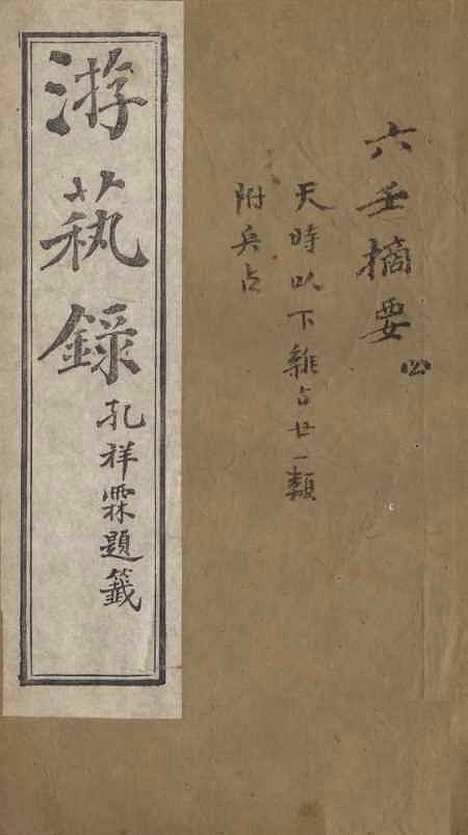 六壬摘要
(2)
天時以下雜占廿一類
附兵占
游蓺錄
孔祥霖題籤